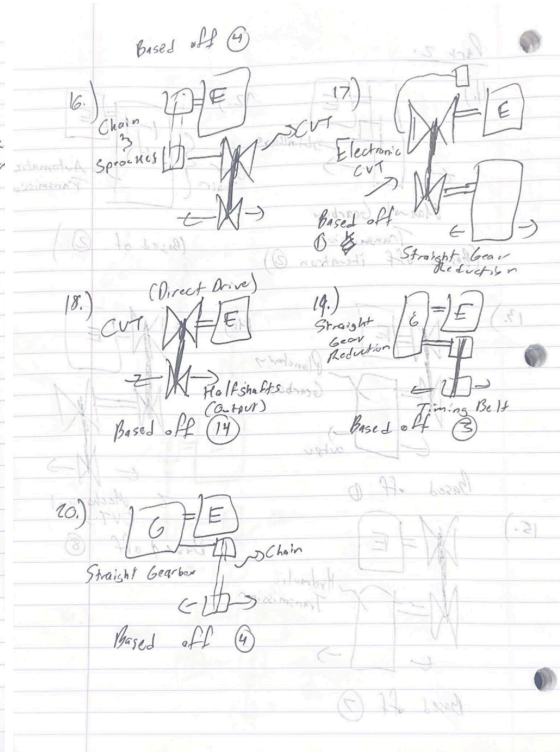 Based off 4
16.)
E
Chain
&
Sprockets
CVT
17)
E
Electronic
CVT
Based off
1
Straight Gear
Reduction
18.)
(Direct Drive)
CVT
E
Halfshafts
(Output)
Based off 14
19.)
Straight
Gear
Reduction
G
E
Timing Belt
Based off 3
20.)
G
E
Chain
Straight Gearbox
Based off 4